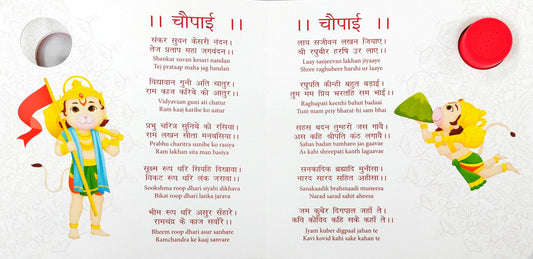 ।। चौपाई ।।
संकर सुवन केसरी नंदन।
तेज प्रताप महा जगबंदन।।
Shankar suvan kesari nandan
Tej prataap maha jag bandan
विद्यावान गुनी अति चातुर।
राम काज करिबे को आतुर।।
Vidyavaan guni ati chatur
Ram kaaj karibe ko aatur
प्रभु चरित्र सुनिबे को रसिया।
राम लखन सीता मनबसिया।।
Prabhu charitra sunibe ko rasiya
Ram lakhan sita man basiya
सूक्ष्म रूप धरि सियहिं दिखावा।
बिकट रूप धरि लंक जरावा।।
Sookshma roop dhari siyahi dikhava
Bikat roop dhari lanka jarava
भीम रूप धरि असुर सँहारे।
रामचंद्र के काज सवाँरे।।
Bheem roop dhari asur sanhare
Ramchandra ke kaaj sanvare
।। चौपाई ।।
लाय सजीवन लखन जियाए।
श्री रघुबीर हरषि उर लाए।।
Laay sanjeevan lakhan jiyaaye
Shree raghubeer harshi ur laaye
रघुपति कीन्ही बहुत बड़ाई।
तुम मम प्रिय भरतहि सम भाई।।
Raghupati keenhi bahut badaai
Tum mam priy bharat-hi sam bhai
सहस बदन तुम्हरो जस गावैं।
अस कहि श्रीपति कंठ लगावैं।।
Sahas badan tumharo jas gaavae
As kahi shreepati kanth lagaavae
सनकादिक ब्रह्मादि मुनीसा।
नारद सारद सहित अहीसा।।
Sanakaadik brahmaadi muneesa
Narad sarad sahit aheesa
जम कुबेर दिगपाल जहाँ ते।
कवि कोविद कहि सके कहाँ ते।।
Jyam kuber digpaal jahan te
Kavi kovid kahi sake kahan te